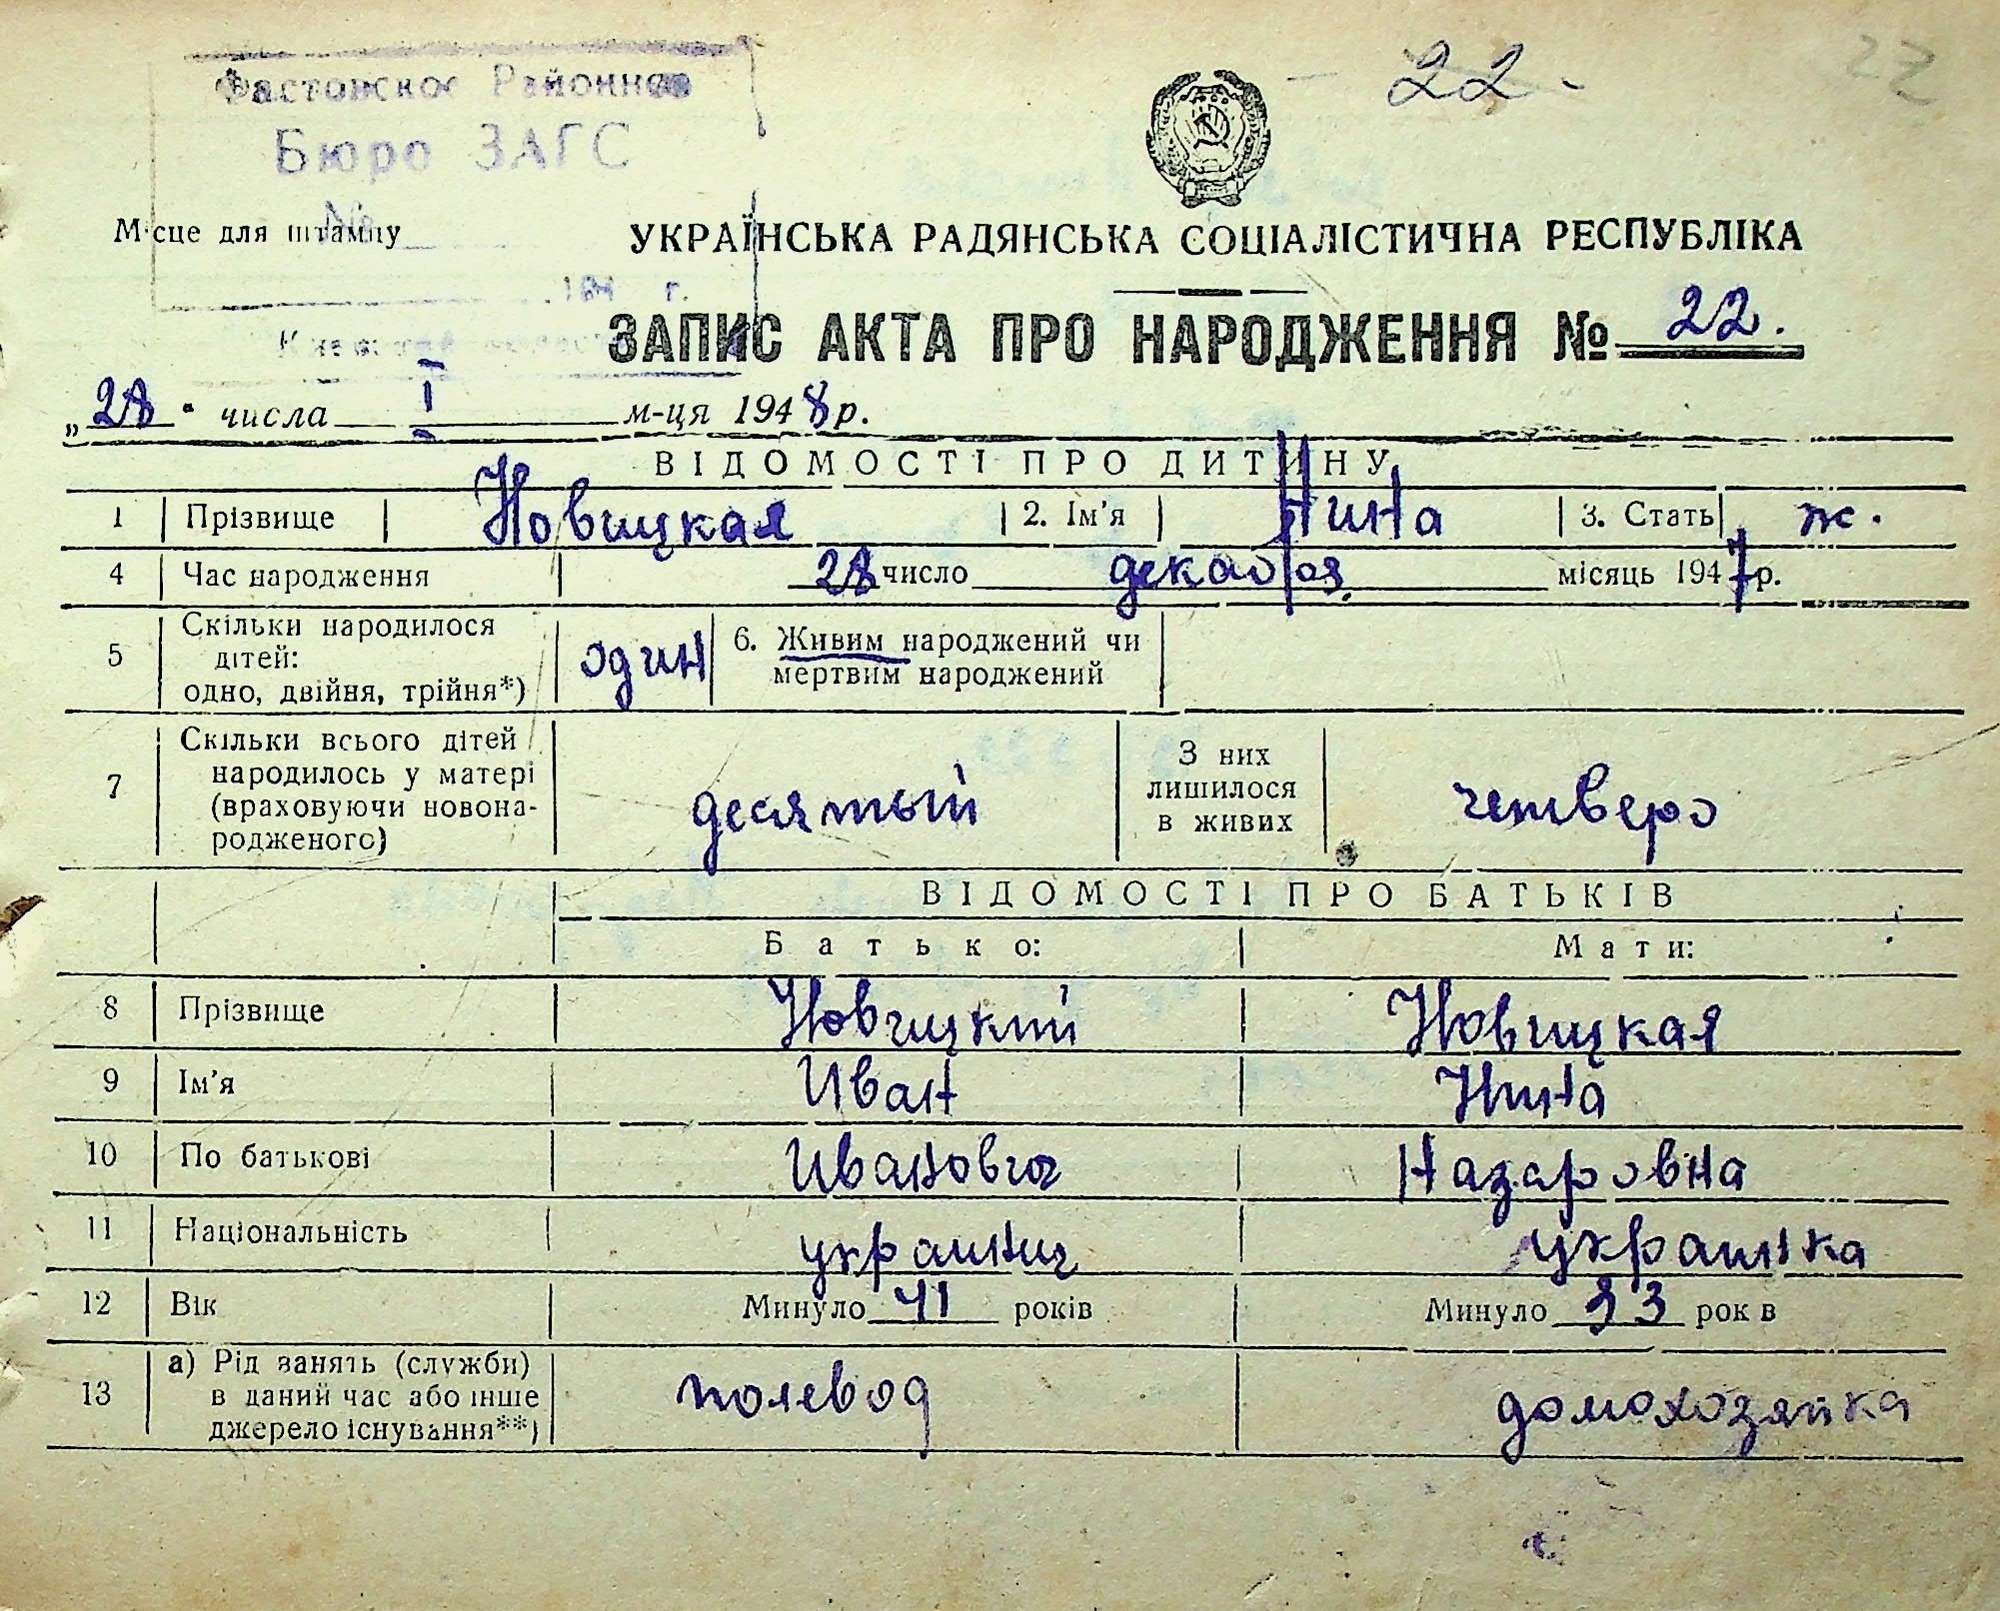 22
22
Фастовское Районное
Бюро ЗАГС
№
Місце для штампу
194 г.
УКРАЇНСЬКА РАДЯНСЬКА СОЦІАЛІСТИЧНА РЕСПУБЛІКА
ЗАПИС АКТА ПРО НАРОДЖЕННЯ № 22.
„28" числа I м-ця 1948 р.
ВІДОМОСТІ ПРО ДИТИНУ
1 Прізвище Новицкая 2. Ім'я Нина 3. Стать ж.
4 Час народження 28 число декабря місяць 1947 р.
5 Скільки народилося дітей: одно, двійня, трійня*) один 6. Живим народжений чи мертвим народжений
7 Скільки всього дітей народилось у матері (враховуючи новонародженого) десятый З них лишилося в живих четверо
ВІДОМОСТІ ПРО БАТЬКІВ
Батько: Мати:
8 Прізвище Новицкий Новицкая
9 Ім'я Иван Нина
10 По батькові Иванович Назаровна
11 Національність украинец украинка
12 Вік Минуло 41 років Минуло 33 років
13 а) Рід занять (служби) в даний час або інше джерело існування**) полевод домохозяйка